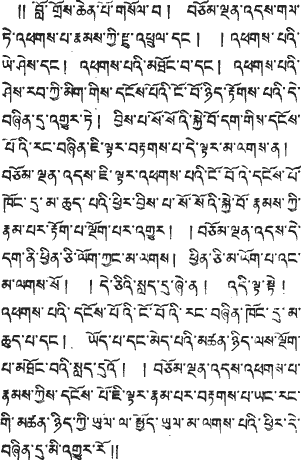 །། བློ་གྲོས་ཆེན་པོ་གསོལ་བ། བཅོམ་ལྡན་འདས་གལ་
ཏེ་འཕགས་པ་རྣམས་ཀྱི་ཇུ་འཕྲུལ་དང་། །འཕགས་པའི་
ཡེ་ཤེས་དང་། འཕགས་པའི་མཐོང་བ་དང་། འཕགས་པའི་
ཤེས་རབ་ཀྱི་མིག་གིས་དངོས་པོའི་ངོ་བོ་ཉིད་རྟོགས་པའི་དེ་
བཞིན་དུ་འགྱུར་ཏེ། བྱིས་པ་སོ་སོའི་སྐྱེ་བོ་དག་གིས་དངོས་
པོའི་རང་བཞིན་ཇི་ལྟར་བརྟགས་པ་དེ་ལྟར་མ་ལགས་ན།
བཅོམ་ལྡན་འདས་ཇི་ལྟར་འཕགས་པའི་ངོ་བོའི་དེ་དངོས་པོ་
ཁོང་དུ་མ་ཆུད་པའི་ཕྱིར་བྱིས་པ་སོ་སོའི་སྐྱེ་བོ་རྣམས་ཀྱི་
རྣམ་པར་རྟོག་པ་ལྡོག་པར་འགྱུར། །བཅོམ་ལྡན་འདས་དེ་
དག་ནི་ཕྱིན་ཅི་ལོག་ཀྱང་མ་ལགས། ཕྱིན་ཅི་མ་ཡོག་པ་འང་
མ་ལགས་སོ། །དེ་ཅིའི་སླད་དུ་ཞེ་ན། འདི་ལྟ་སྟེ།
འཕགས་པའི་དངོས་པོའི་ངོ་བོའི་རང་བཞིན་ཁོང་དུ་མ་
ཆུད་པ་དང་། ཡོད་པ་དང་མེད་པའི་མཚན་ཉིད་ལས་ལྡོག་
པ་མཐོང་བའི་སླད་དུའོ། །བཅོམ་ལྡན་འདས་འཕགས་པ་
རྣམས་ཀྱིས་དངོས་པོ་ཇི་ལྟར་རྣམ་པར་བརྟགས་པ་ཡང་རང་
གི་མཚན་ཉིད་ཀྱི་ཡུལ་ལ་སྤྱོད་ཡུལ་མ་ལགས་པའི་ཕྱིར་དེ་
བཞིན་དུ་མི་འགྱུར་རོ།།